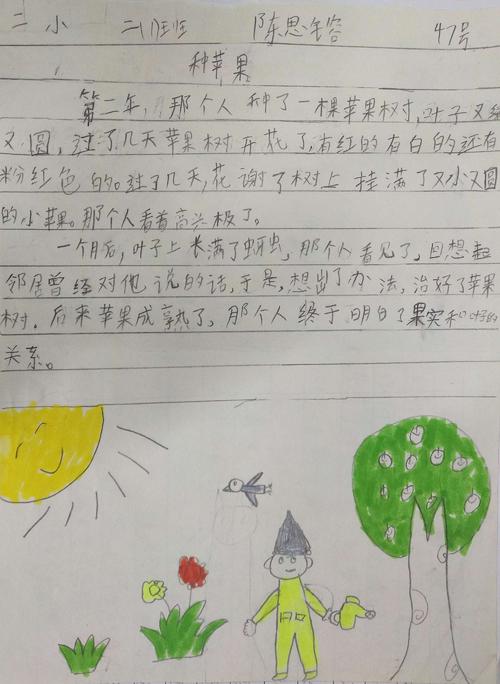 二小 二(1)班 陈思镕 47号
种苹果
第二年，那个人种了一棵苹果树，叶子又绿
又圆，过了几天苹果树开花了，有红的有白的还有
粉红色的。过了几天，花谢了树上挂满了又小又圆
的小苹果。那个人看着高兴极了。
一个月后，叶子上长满了蚜虫，那个人看见了，回想起
邻居曾经对他说的话，于是，想出了办法，治好了苹果
树。后来苹果成熟了，那个人终于明白了果实和叶的
关系。